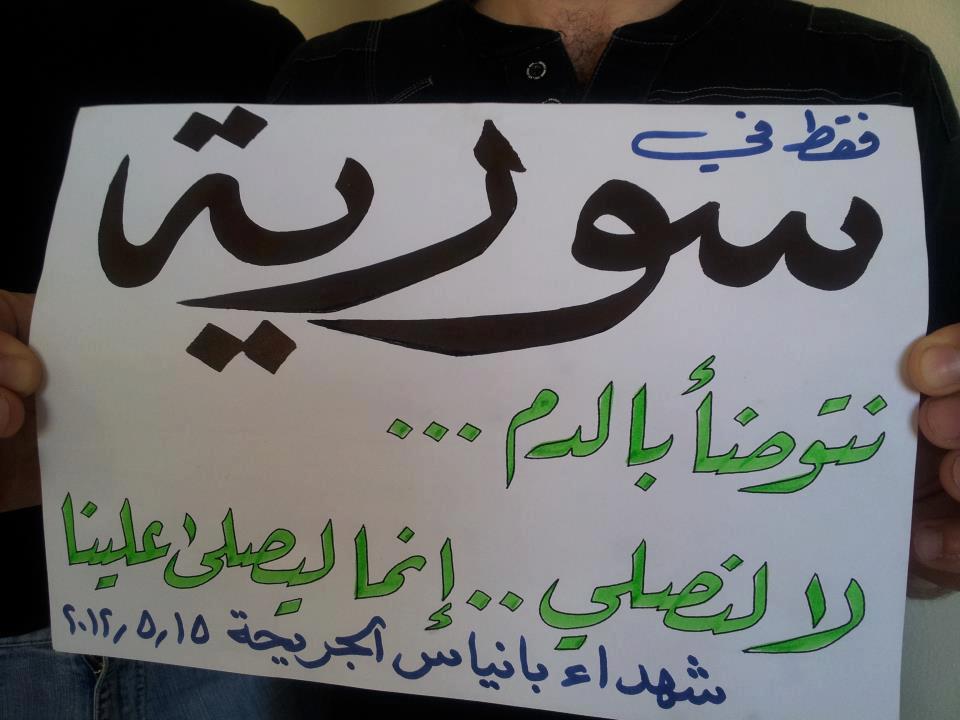 فقط في
سورية
نتوضأ بالدم ...
لا لنصلي .. إنما ليصلى علينا
شهداء بانياس الجريحة ٢٠١٢/٥/١٥